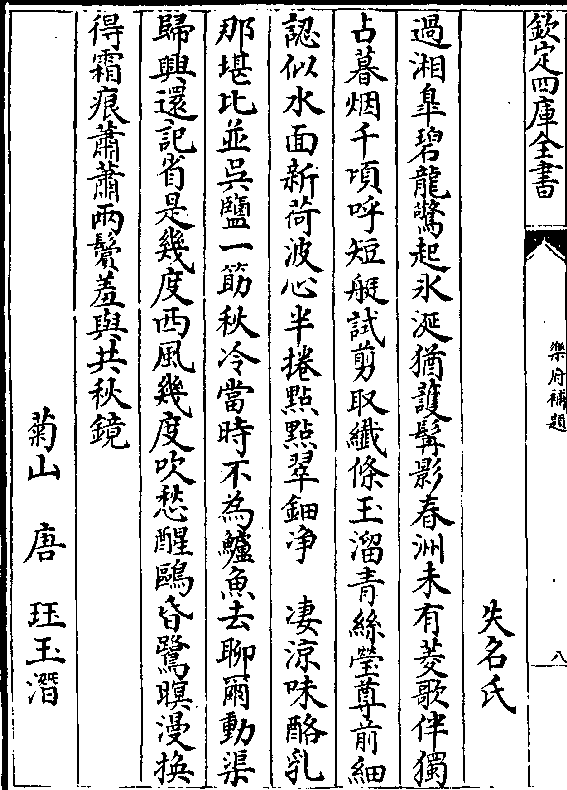 欽定四庫全書
樂府補題
八
失名氏
過湘皐碧龍驚起氷涎猶護髯影春洲未有菱歌伴獨
占暮烟千頃呼短艇試剪取纖條玉溜青絲瑩尊前細
認似水面新荷波心半捲點點翠鈿净　凄涼味酪乳
那堪比並吳鹽一筯秋冷當時不為鱸魚去聊爾動渠
歸興還記省是幾度西風幾度吹愁醒鷗昏鷺暝漫換
得霜痕蕭蕭兩鬢羞與共秋鏡
菊山　唐　珏玉潛